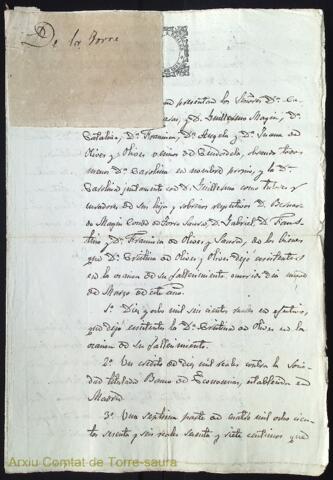 De la Torre
presentan los Señores Dⁿ. Ca-
y Dⁿ. Guillermo Magin, Dª.
Catalina, Dª. Francisca, Dª. Angela y Dª. Juana de
Olives y Olives vecinos de Ciudadela, obrando todos
menos Dª. Carolina en nombre propio y la Dª.
Carolina juntamente con Dⁿ. Guillermo como tutores y
curadores de sus hijo y sobrinos respectivos Dⁿ. Bernardo
de Magin Conde de Torre Saura, Dⁿ. Gabriel, Dⁿ. Faus-
tino y Dª. Francisca de Olives y Saura, de los bienes
que Dª. Cristina de Olives y Olives dejó existentes
en la ocasion de su fallecimiento, ocurrido dia
de Marzo de este año.
1º. Diez y ocho mil seis cientos reales en efectivo,
que dejó existentes la Dª. Cristina de Olives en la
ocasion de su fallecimiento.
2º. Un credito de diez mil reales contra la Socie-
dad titulada Banco de Economias, establecida en
Madrid.
3º. Una septima parte de cuatro mil ocho cien-
tos sesenta y seis reales sesenta y siete centimos que
Arxiu Comtat de Torre-saura